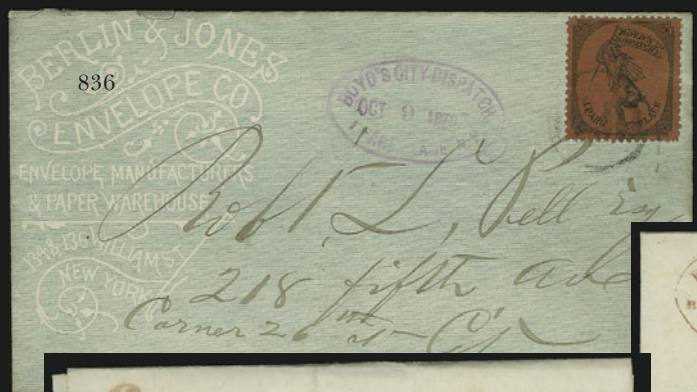 BERLIN & JONES
ENVELOPE CO.
ENVELOPE MANUFACTURERS
& PAPER WAREHOUSE
134 & 136 WILLIAM ST.
NEW YORK
836
BOYD'S CITY DISPATCH
OCT 9 1878
1 PARK PLACE N.Y.
BOYD'S
DISPATCH
1 PARK PLACE
Robt. L. Pell Esq
218 fifth Ave
Corner 26th St - City